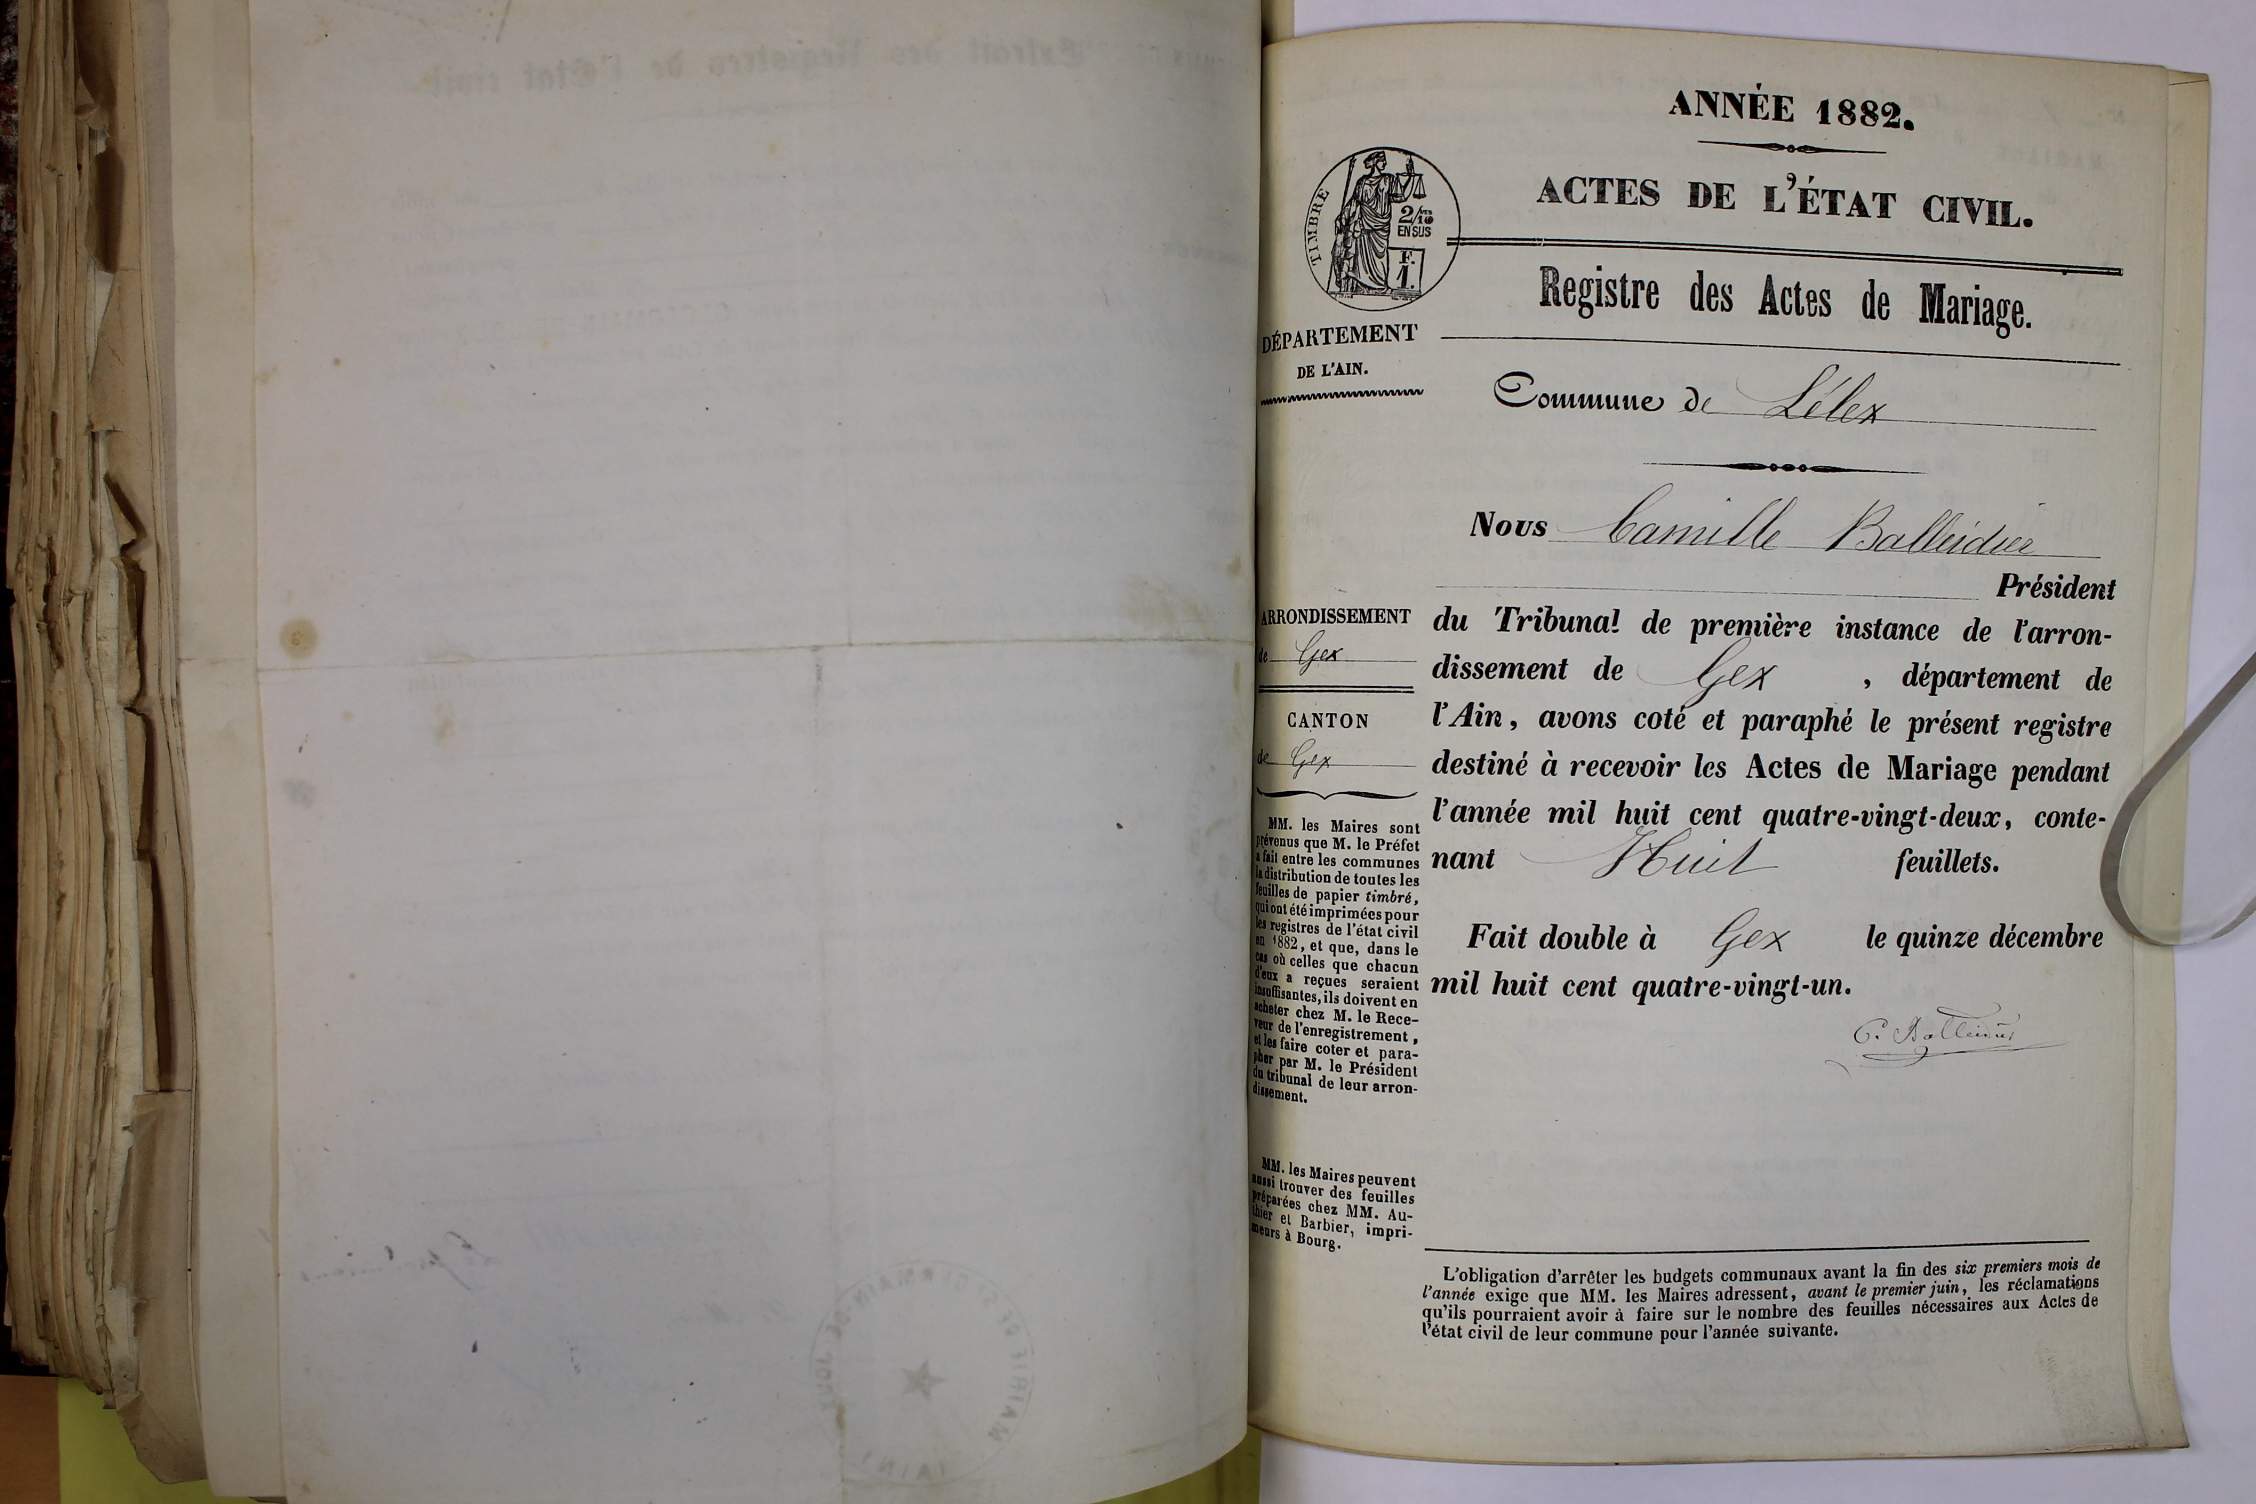 ANNÉE 1882.
ACTES DE L'ÉTAT CIVIL.
TIMBRE
2/10
EN SUS
F.
1.
Registre des Actes de Mariage.
DÉPARTEMENT
DE L'AIN.
Commune de Lélex
Nous Camille Balleidier
Président
du Tribunal de première instance de l'arron-
dissement de Gex , département de
l'Ain, avons coté et paraphé le présent registre
destiné à recevoir les Actes de Mariage pendant
l'année mil huit cent quatre-vingt-deux, conte-
nant Huit feuillets.
Fait double à Gex le quinze décembre
mil huit cent quatre-vingt-un.
C. Balleidier
ARRONDISSEMENT
de Gex
CANTON
de Gex
MM. les Maires sont
prévenus que M. le Préfet
a fait entre les communes
la distribution de toutes les
feuilles de papier timbré,
qui ont été imprimées pour
les registres de l'état civil
en 1882, et que, dans le
cas où celles que chacun
d'eux a reçues seraient
insuffisantes, ils doivent en
acheter chez M. le Rece-
veur de l'enregistrement,
et les faire coter et para-
pher par M. le Président
du tribunal de leur arron-
dissement.
MM. les Maires peuvent
aussi trouver des feuilles
préparées chez MM. Au-
thier et Barbier, impri-
meurs à Bourg.
L'obligation d'arrêter les budgets communaux avant la fin des six premiers mois de
l'année exige que MM. les Maires adressent, avant le premier juin, les réclamations
qu'ils pourraient avoir à faire sur le nombre des feuilles nécessaires aux Actes de
l'état civil de leur commune pour l'année suivante.